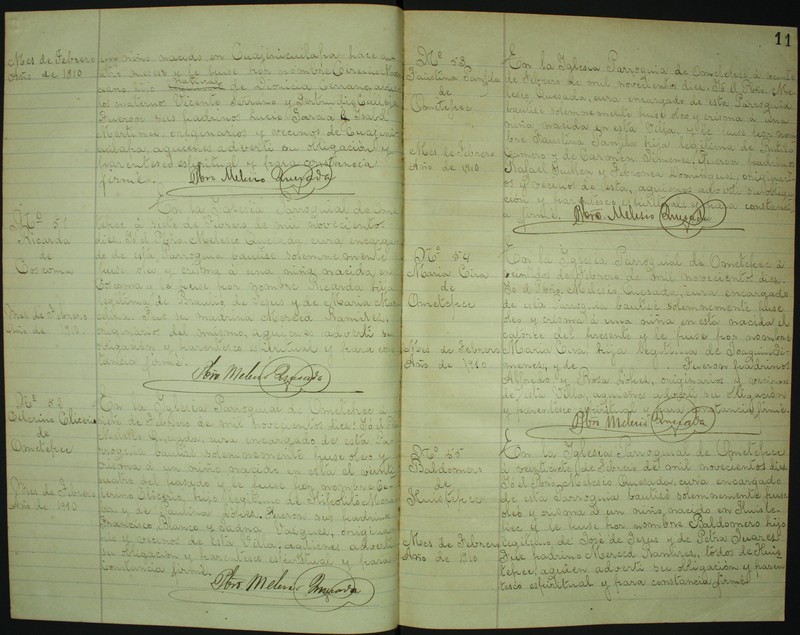 Mes de Febrero
Año de 1910
un niño nacido en Cuajinicuilapa hace un
año meses y le puse por nombre
natural
hijo de Leonicia Serrano,
materno Vicente Serrano y
Fueron sus padrinos Lucio Garcia é Isabel
Martinez, originarios y vecinos de Cuajini-
cuilapa, aquienes advertí su obligación y
parentesco espiritual y para constancia
firmé.
Pbro. Melesio Quezada
Nº 51
Ricarda
de
Cocoma
Mes de Febrero
Año de 1910
En la Iglesia Parroquial de Ome-
tepec á siete de Febrero de mil novecientos
diez. Yo el Pbro. Melesio Quezada, cura encarga-
do de esta Parroquia bauticé solemnemente
puse oleo y crisma á una niña, nacida en
Cocoma y le puse por nombre Ricarda hija
legitima de Braulio de Jesus y de Maria
Fue su madrina Merced Ramirez,
originario del mismo, aquienes advertí su
obligación y parentesco espiritual y para cons-
tancia firmé.
Pbro. Melesio Quezada
Nº 52
de
Ometepec
Mes de Febrero
Año de 1910
En la Iglesia Parroquial de Ometepec á
de Febrero de mil novecientos diez. Yo el Pbro.
Melesio Quezada, cura encargado de esta Pa-
rroquia bauticé solemnemente puse oleo y
crisma á un niño nacido en esta el veinti
cuatro del pasado y le puse por nombre
hijo legitimo de Hipolito
y de Paulina Lopez. Fueron sus padrinos
Francisco Blanco y Vasquez, origina-
rios y vecinos de esta Villa, aquienes advertí
su obligación y parentesco espiritual y para
constancia firmé.
Pbro. Melesio Quezada
11
Nº 53
Faustina
de
Ometepec
Mes de Febrero
Año de 1910
En la Iglesia Parroquial de Ometepec á
de Febrero de mil novecientos diez. Yo el Pbro. Me-
lesio Quezada, cura encargado de esta Parroquia
bauticé solemnemente puse oleo y crisma á una
niña nacida en esta Villa, y le puse por nom-
bre Faustina hija legitima de Rutilo
Romero y de Carmen Jimenez. Fueron padrinos
Rafael Guillen y Dominguez, origi
y vecino de esta, aquienes advertí su obliga-
ción y parentesco espiritual y para constanci
a firmé.
Pbro. Melesio Quezada
Nº 54
Maria Cira
de
Ometepec
Mes de Febrero
Año de 1910
En la Iglesia Parroquial de Ometepec á
de Febrero de mil novecientos diez.
Yo el Pbro. Melesio Quezada, cura encargado
de esta Parroquia bauticé solemnemente puse
oleo y crisma á una niña en esta nacida el
catorce del presente y le puse por nombre
Maria Cira hija legitima de Joaquin Ji-
menez, y de Fueron padrinos
Alfredo y Rosa Lopez, originarios y vecinos
de esta Villa, aquienes advertí su obligación
y parentesco espiritual y para constancia firmé.
Pbro. Melesio Quezada
Nº 55
Baldomero
de
Huistepec
Mes de Febrero
Año de 1910
En la Iglesia Parroquial de Ometepec
á veintisiete de Febrero de mil novecientos diez
Yo el Pbro. Melesio Quezada, cura encargado
de esta Parroquia bauticé solemnemente puse
oleo y crisma á un niño, nacido en Huiste-
pec y le puse por nombre Baldomero hijo
legitimo de Jose de Jesus y de Petra Juarez
Fue padrino Merced Ramirez, todos de Huis
tepec, aquien advertí su obligación y paren
tesco espiritual y para constancia firmé.